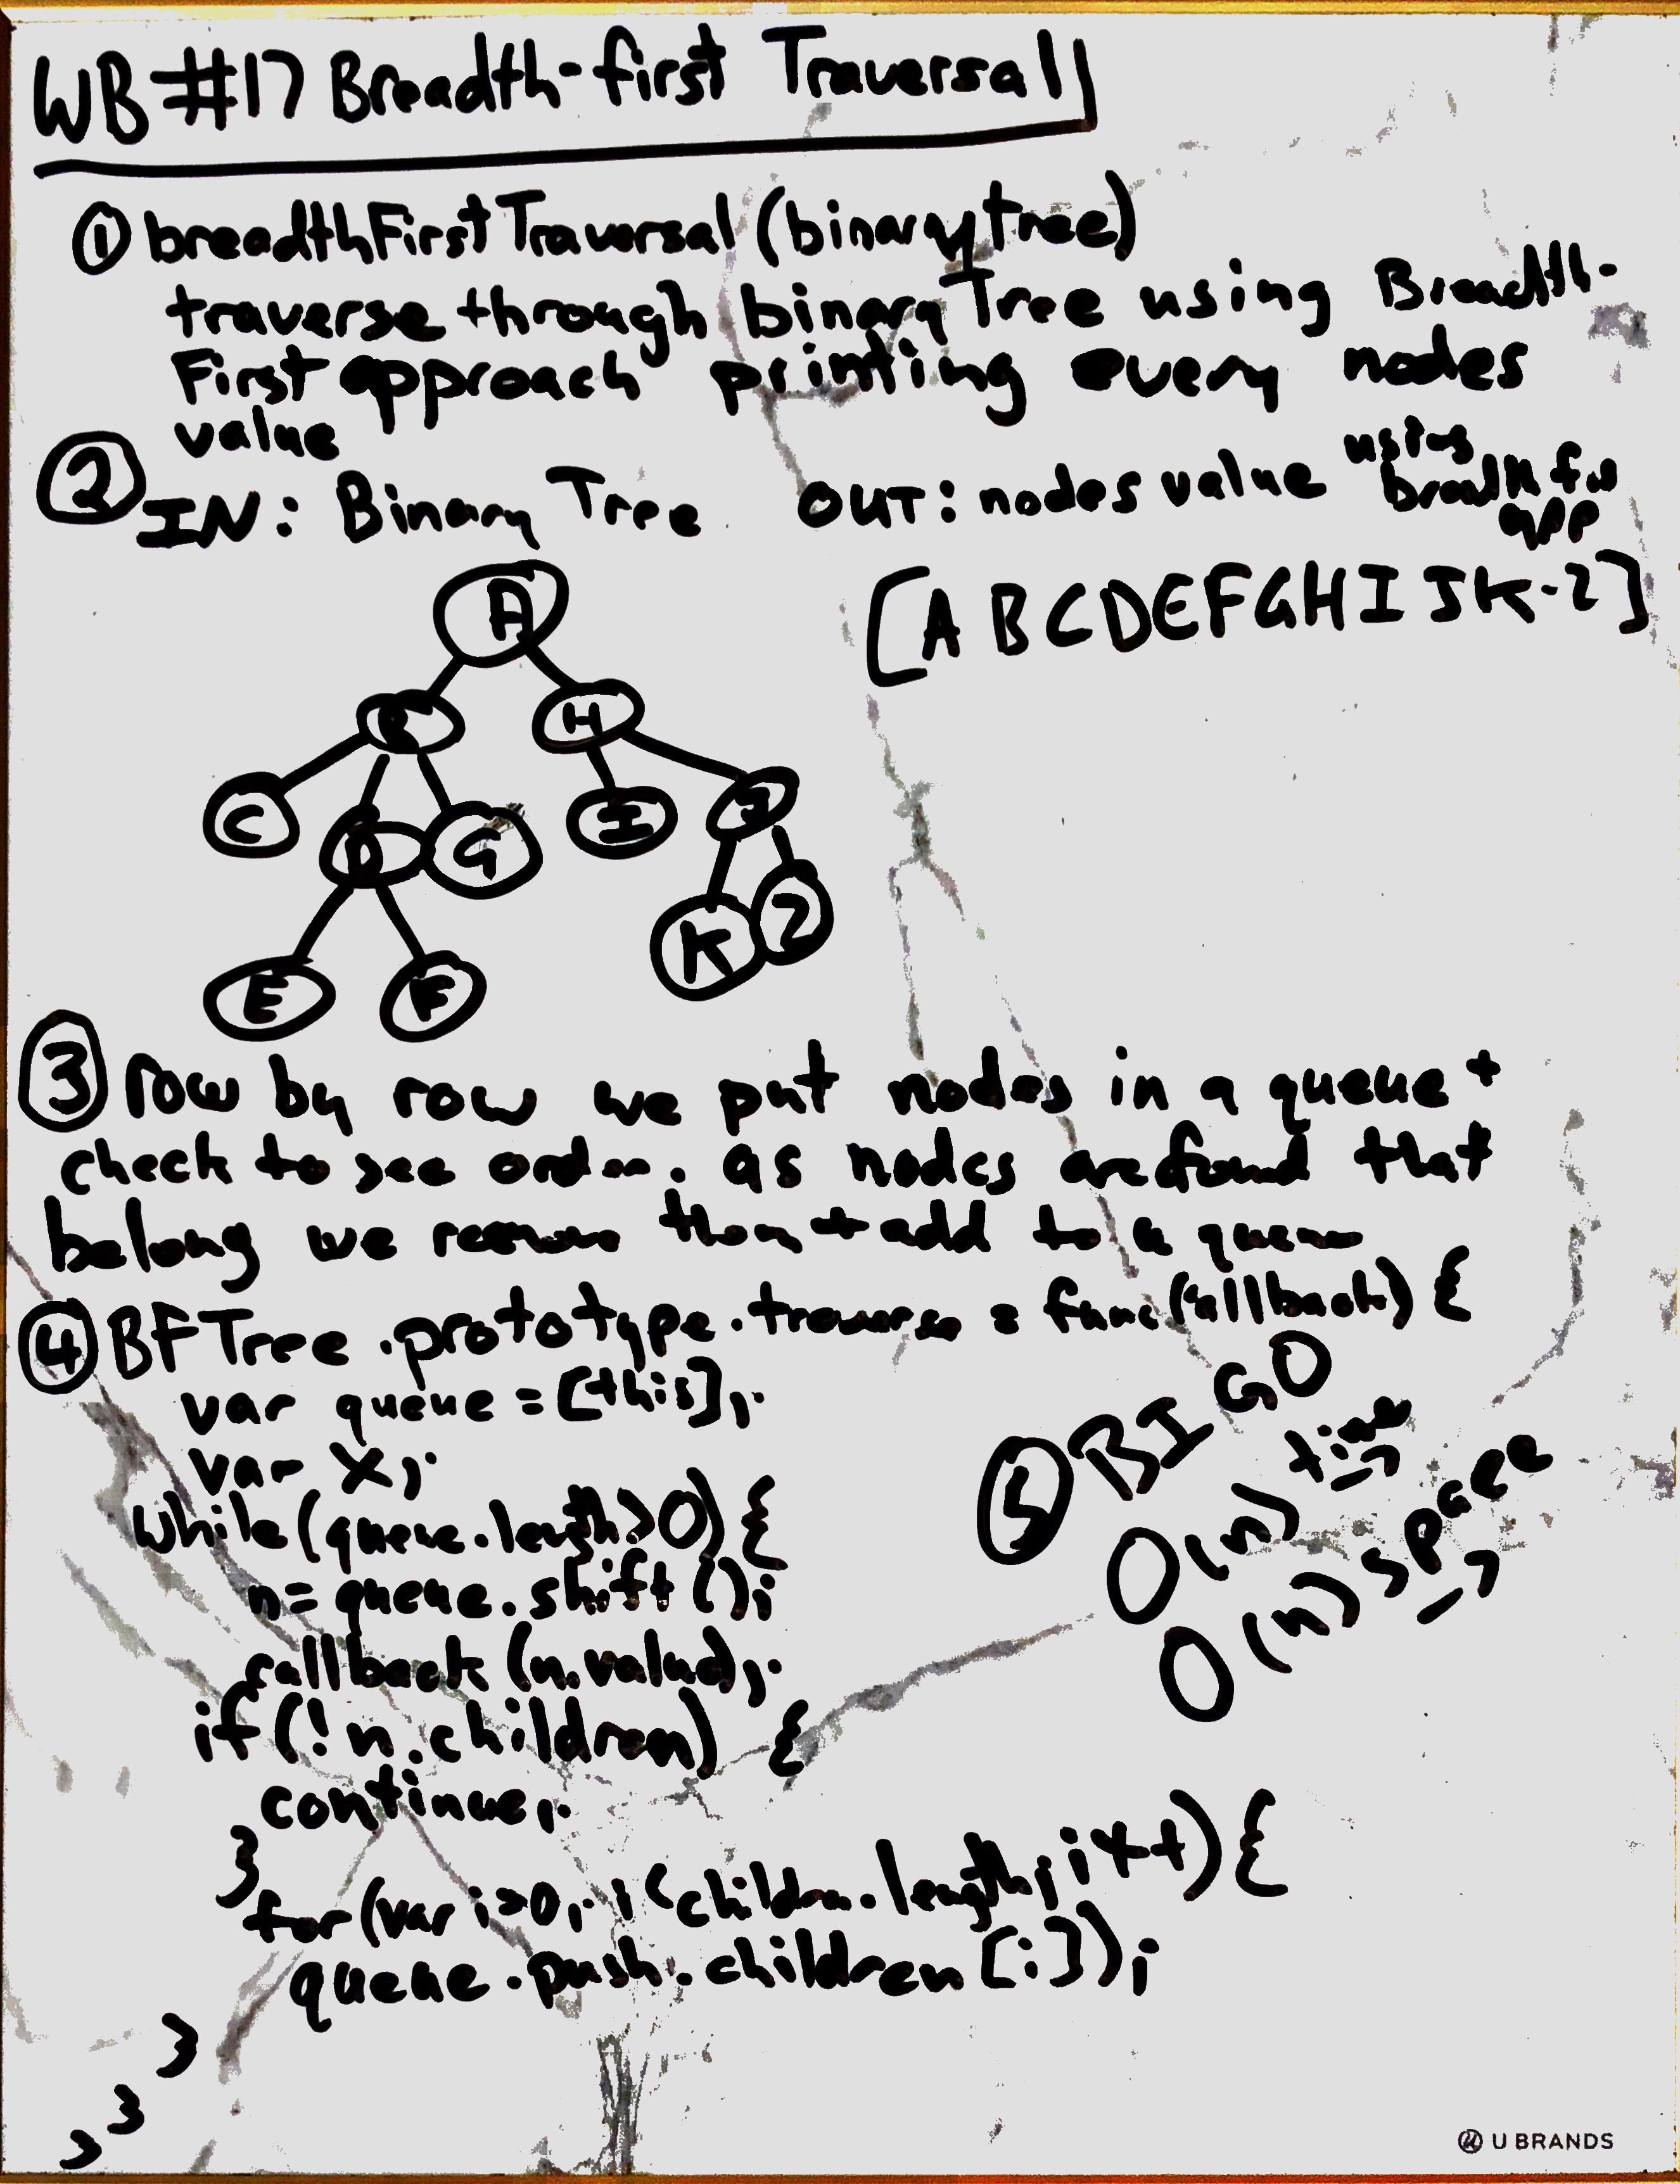 WB #17 Breadth-first Traversal
① breadthFirstTraversal (binarytree)
traverse through binaryTree using Breadth-
First approach printing every nodes
value
② IN: Binary Tree OUT: nodes value using
app
[A B C D E F G H I J K - Z]
A
H
C D G I J
K Z
E F
③ row by row we put nodes in a queue +
check to see order. as nodes are found that
belong we remove them + add to a queue
④ BFTree.prototype.traverse = func(callback) {
var queue = [this];
var x;
while(queue.length>0) {
n = queue.shift();
callback (n.value);
if (!n.children) {
continue;
}
for(var i=0; i<children.length; i++) {
queue.push.children[i]);
}
}
}
⑤ BIG O
O(n) time
O(n) space
U BRANDS